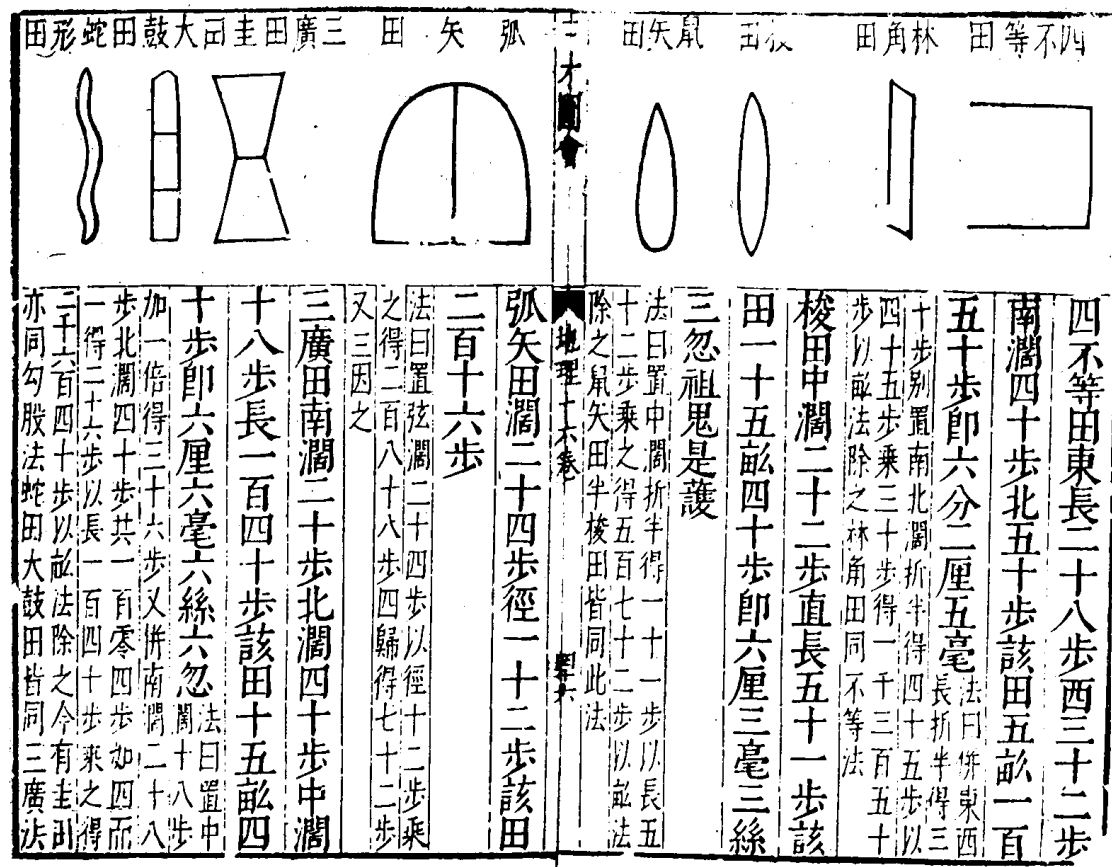 四不等田
林角田
梭田
鼠矢田
四不等田東長二十八步西三十二步
南濶四十步北五十步該田五畆一百
五十步卽六分二厘五毫
法曰併東西
長折半得三
十步别置南北濶折半得四十五步以
四十五步乘三十步得一千三百五十
步以畆法除之林角田同不等法
梭田中濶二十二步直長五十一步該
田一十五畆四十步卽六厘三毫三絲
三忽祖鬼是護
法曰置中濶折半得一十一步以長五
十二步乘之得五百七十二步以畆法
除之鼠矢田半梭田皆同此法
三才圖會
地理十六卷
弧矢田
三廣田
圭田
大鼓田
蛇形田
弧矢田濶二十四步徑一十二步該田
二百十六步
法曰置弦濶二十四步以徑十二步乘
之得二百八十八步四歸得七十二步
又三因之
三廣田南濶二十步北濶四十步中濶
十八步長一百四十步該田十五畆四
十步卽六厘六毫六絲六忽
法曰置中
濶十八步
加一倍得三十六步又併南濶二十八
步北濶四十步共一百零四步如四而
一得二十六步以長一百四十步乘之得
三千六百四十步以畆法除之今有圭田
亦同勾股法蛇田大鼓田皆同三廣法